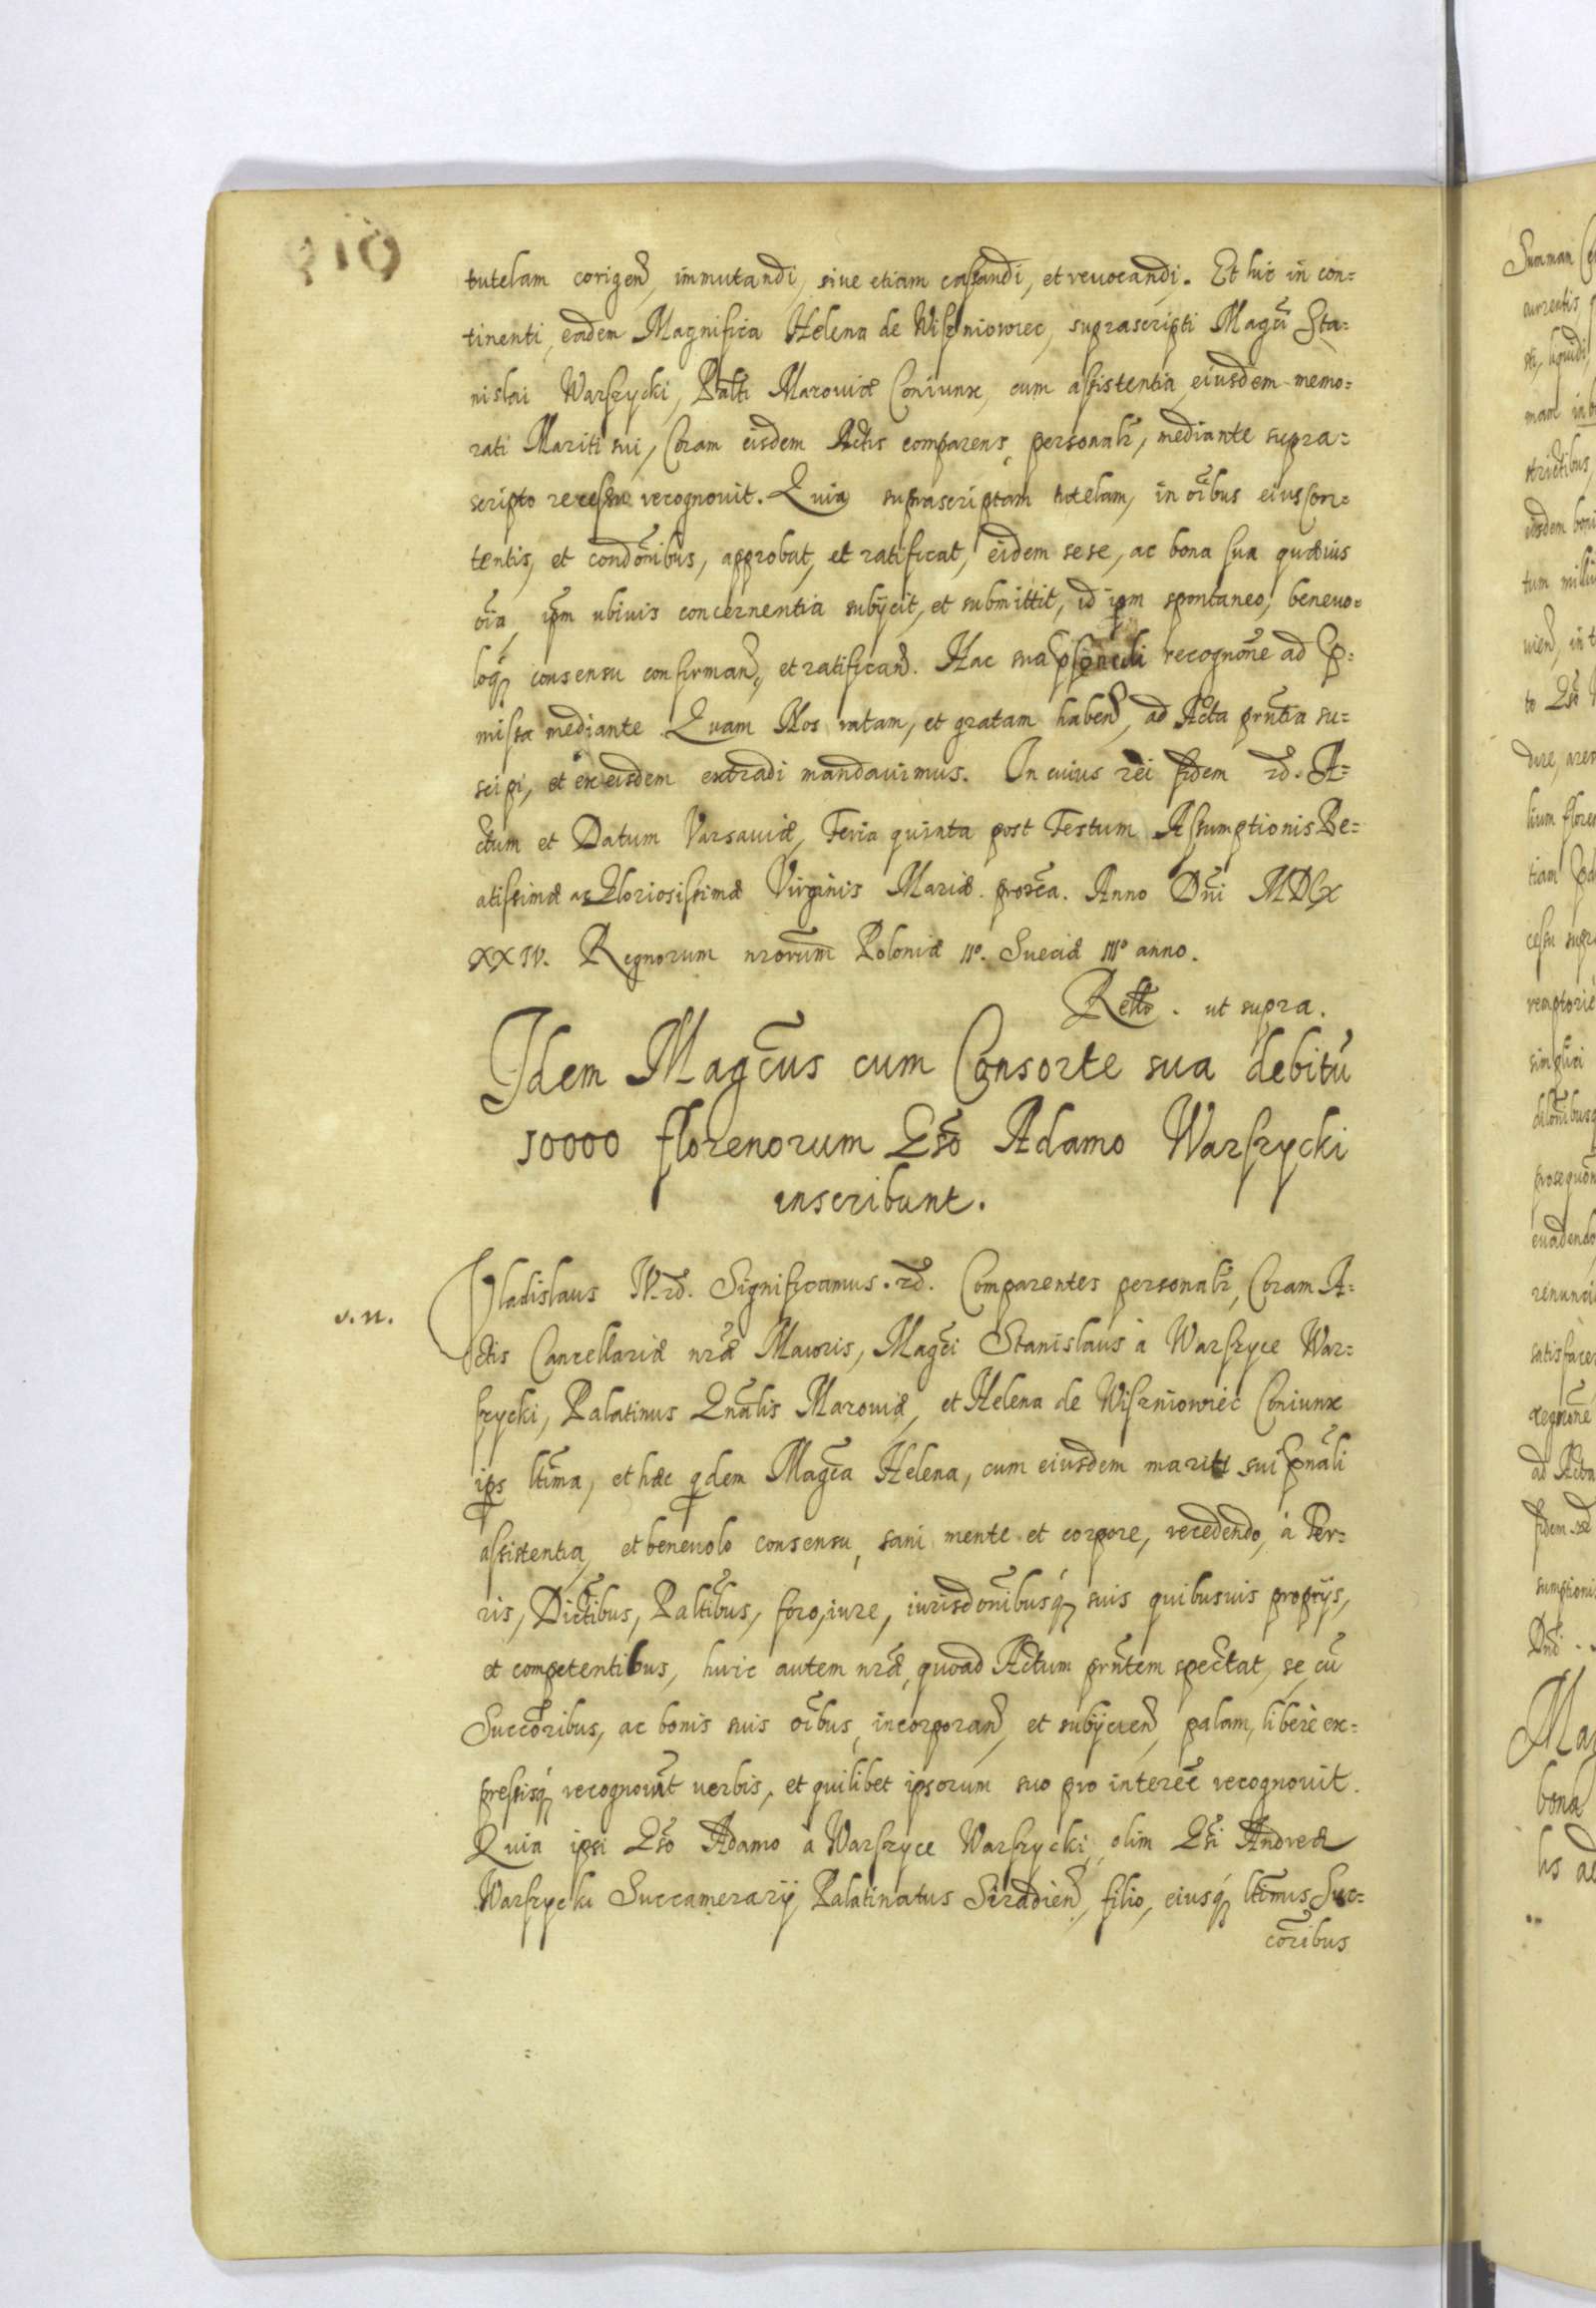 tutelam corigend, immutandi, siue etiam cassandi, et reuocandi. Et hic in con=
tinenti, eadem Magnifica Helena de Wiszniowiec, suprascripti Magci Sta=
nislai Warszycki, Palti Mazouiæ Coniunx, cum assistentia eiusdem memo=
rati Mariti sui, Coram eisdem Actis comparens personalr, mediante supra=
scripto recessu recognouit. Quia suprascriptam tutelam, in oibus eius con=
tentis, et condonibus, approbat, et ratificat, eidem sese, ac bona sua quæuis
oia, ipm ubiuis concernentia subijcit, et submittit, id ipm spontaneo, beneuo=
loq consensu confirmand, et ratificand. Hac sua recognone ad p=
missa mediante. Quam Nos ratam, et gratam habend, ad Acta prntia su=
scipi, et ex eisdem extradi mandauimus. In cuius rei fidem rd. A=
ctum et Datum Varsauiæ, Feria quinta post Festum Assumptionis Be=
atissimæ ac Gloriosissimæ Virginis Mariæ proxa. Anno Dni MDCX
XXIV. Regnorum nrorum Poloniæ IIº. Sueciæ IIIº anno.
Rello. ut supra.
Idem Magcus cum Consorte sua debitū
10000 florenorum Gso Adamo Warszycki
inscribunt.
v. n.
Vladislaus IV. rd. Significamus. rd. Comparentes personalr, Coram A=
ctis Cancellariæ nræ Maioris, Magci Stanislaus à Warszyce War=
szycki, Palatinus Gnalis Mazouiæ, et Helena de Wiszniowiec Coniunx
ips ltima, et hæc qdem Magca Helena, cum eiusdem mariti sui pnali
assistentia, et beneuolo consensu, sani mente et corpore, recedendo, à Ter=
ris, Dictibus, Paltibus, foro, iure, iurisdonibusq suis quibusuis proprijs,
et competentibus, huic autem nræ, quoad Actum prntem spectat, se, cū
Succoribus, ac bonis suis oibus, incorporand, et subijciend, palam, liberè ex=
pressisq recognourt uerbis, et quilibet ipsorum suo pro interee recognouit.
Quia ipsi Gso Adamo à Warszyce Warszycki, olim Gsi Andreæ
Warszycki Succamerarij Palatinatus Siradien, filio, eiusq ltimus Suc=
coribus